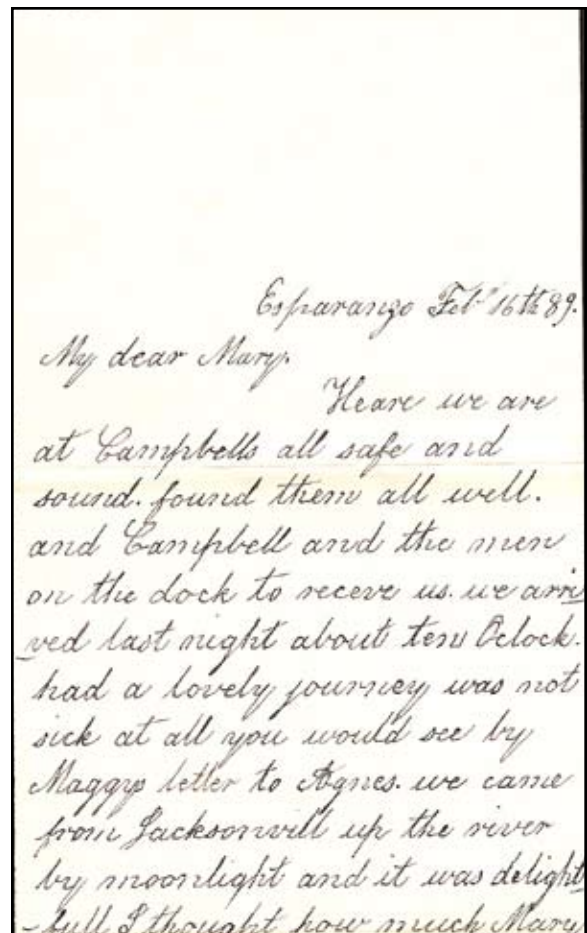 Esparanzo Feb 16th 89.
My dear Mary.
Heare we are
at Campbells all safe and
sound. found them all well.
and Campbell and the men
on the dock to receve us. we arri
ved last night about ten Oclock.
had a lovely journey was not
sick at all you would see by
Maggys letter to Agnes. we came
from Jacksonvill up the river
by moonlight and it was delight
-full I thought how much Mary